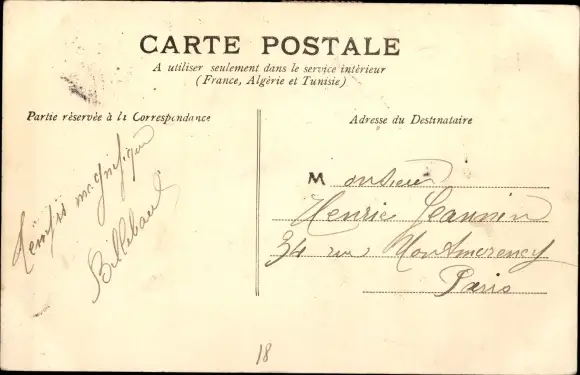 CARTE POSTALE
A utiliser seulement dans le service intérieur
(France, Algérie et Tunisie)
Partie réservée à la Correspondance
Temps magnifique
Billebault
Adresse du Destinataire
Monsieur
Henrie Jeannin
34 rue Montmorency
Paris
18